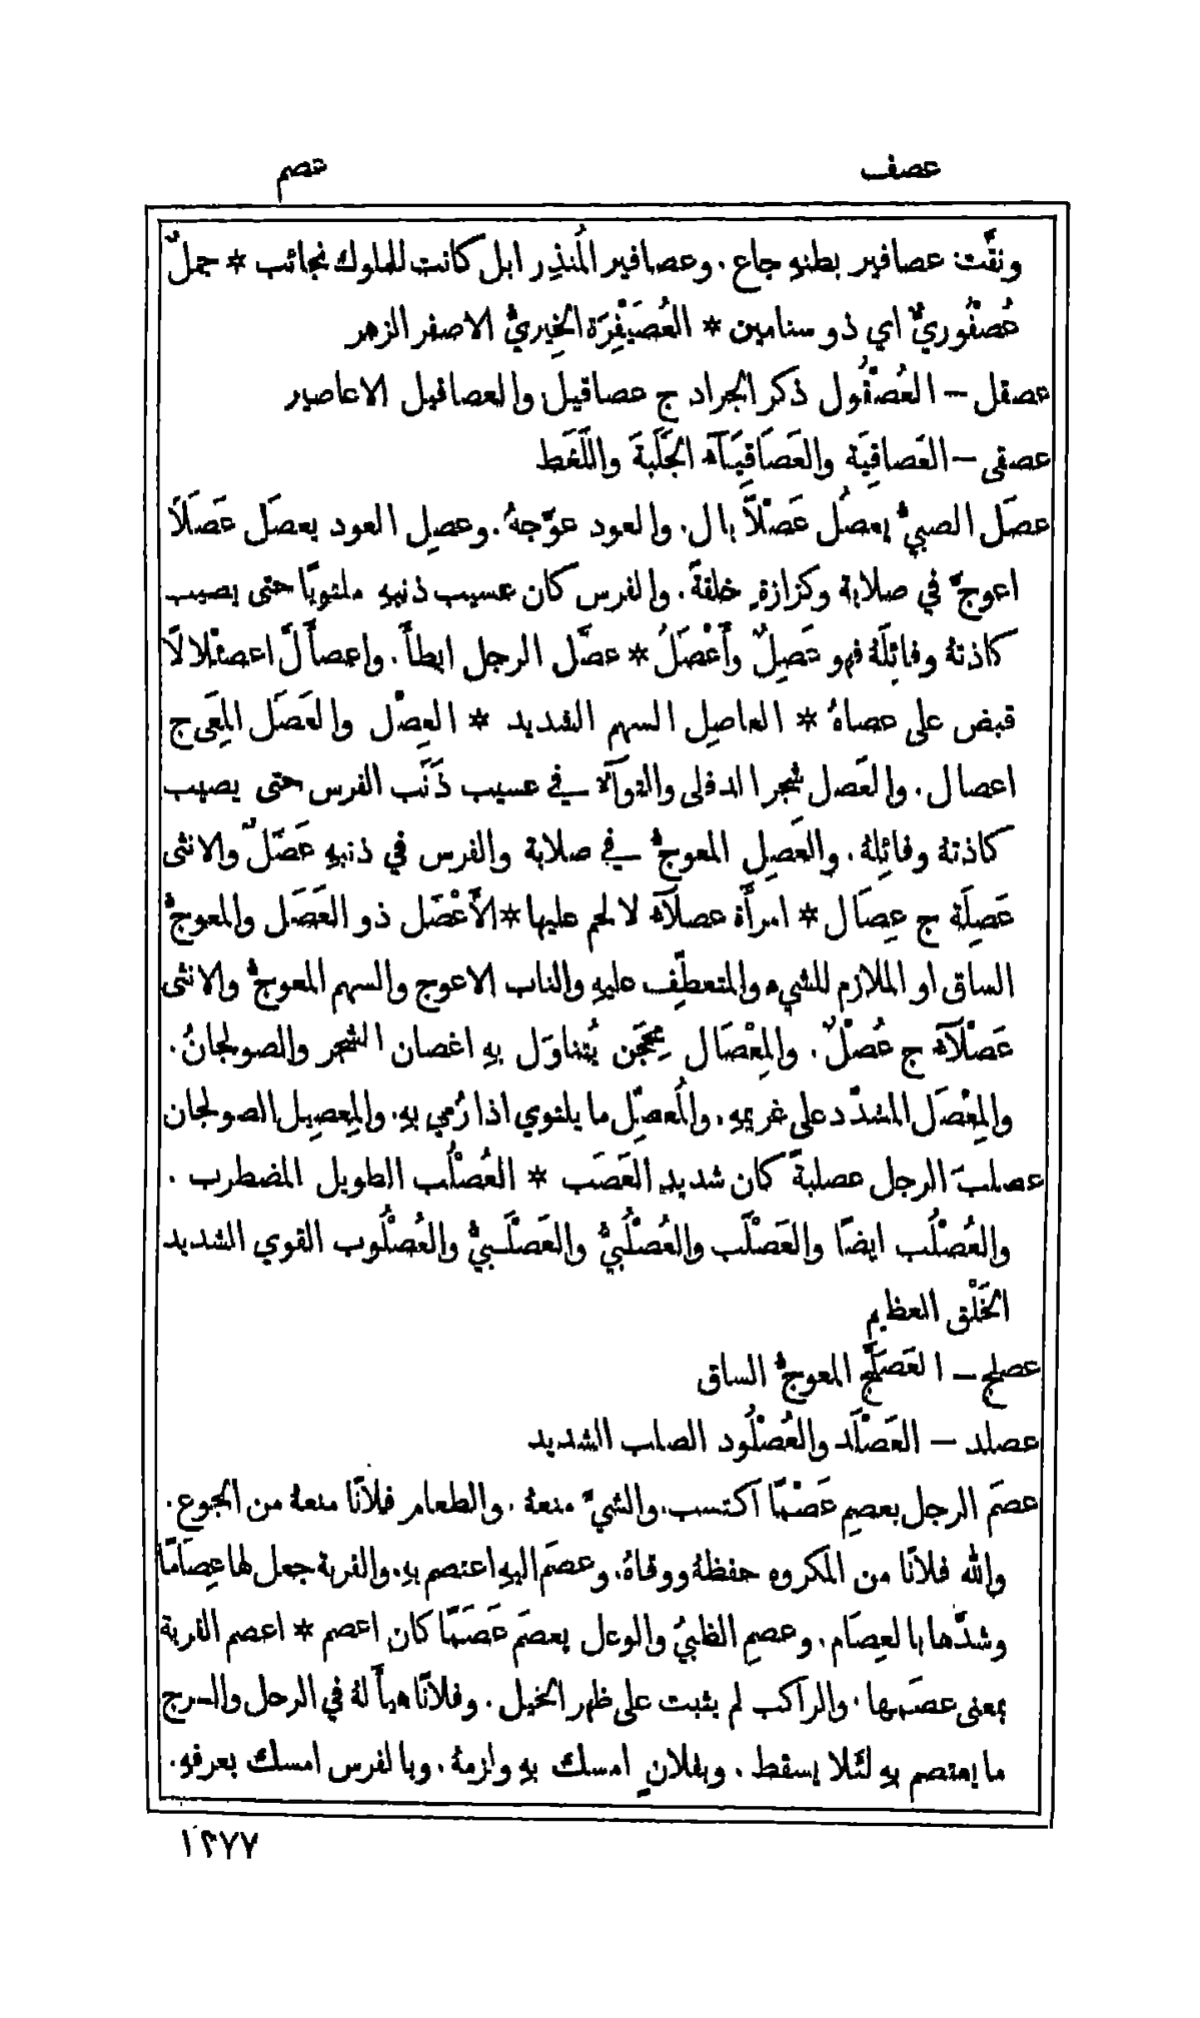 عصف
عصم
ونقَّت عصافير بطنهِ جاع. وعصافير المُنذِر ابل كانت للملوك نجائب * جملٌ
عُصْفُوريٌّ اي ذو سنامين * العُصَيْفِرَة الخِيريُّ الاصفر الزهر
عصقل – العُصْقُول ذكر الجراد ج عصاقيل والعصاقيل الاعاصير
عصقى – العَصاقِيَة والعَصَاقِيَآء الجَلَبةَ واللَّغَط
عصَل الصبيُّ يعصُل عَصْلًا بال. والعود عوَّجهُ. وعصِل العود يعصَل عَصَلًا
اعوجَّ في صلابة وكزازةٍ خلقةً. والفرس كان عسيب ذنبهِ ملتويًا حتى يصيب
كاذتهُ وفائِلَهُ فهو عَصِلٌ وأَعْصَلُ * عصَّل الرجل ابطأَ. واعصأَلَّ اعصئلالًا
قبض على عصاهُ * العاصِل السهم الشديد * العِصْل والعَصَل المِعَى ج
اعصال. والعَصَل شجر الدفلى والتوآء في عسيب ذَنَب الفرس حتى يصيب
كاذتهُ وفائِلهُ. والعَصِل المعوجُّ في صلابة والفرس في ذنبهِ عَصَلٌ والانثى
عَصِلَة ج عِصَال * امرأَة عصلآء لا لحم عليها * الأَعْصَل ذو العَصَل والمعوجُّ
الساق او الملازم للشيء والمتعطِّف عليهِ والناب الاعوج والسهم المعوجُّ والانثى
عَصْلَآء ج عُصْلٌ. والمِعْصَال مِحْجَن يُتناوَل بهِ اغصان الشجر والصولجانُ.
والمِعْصَل المشدَّد على غريمهِ. والمُعصِّل ما يلتوي اذا رُمي بهِ. والمِعصِيل الصولجان
عصلبَ الرجل عصلبةً كان شديد العَصَب * العُصْلُب الطويل المضطرب.
والعُصْلُب ايضًا والعَصْلَب والعُصْلُبيُّ والعَصْلَبيُّ والعُصْلُوب القوي الشديد
الخَلْق العظيم
عصلج – العَصَلَّج المعوجُّ الساق
عصلد – العَصْلَد والعُصْلُود الصلب الشديد
عصَم الرجل يعصِم عَصْمًا اكتسب. والشيءَ منعهُ. والطعام فلانًا منعهُ من الجوع.
والله فلانًا من المكروه حفظهُ ووقاهُ. وعصَم اليهِ اعتصم بهِ. والقربة جعل لها عِصَامًا
وشدَّها بالعِصَام. وعصِم الظبيُ والوعل يعصَم عَصَمًا كان اعصم * اعصم القربة
بمعنى عصَمها. والراكب لم يثبت على ظهر الخيل. وفلانًا هيأَ لهُ في الرحل والسرج
ما يعتصم بهِ لئلا يسقط. وبفلانٍ امسك بهِ ولزمهُ. وبالفرس امسك بعرفهِ.
١٣٧٧